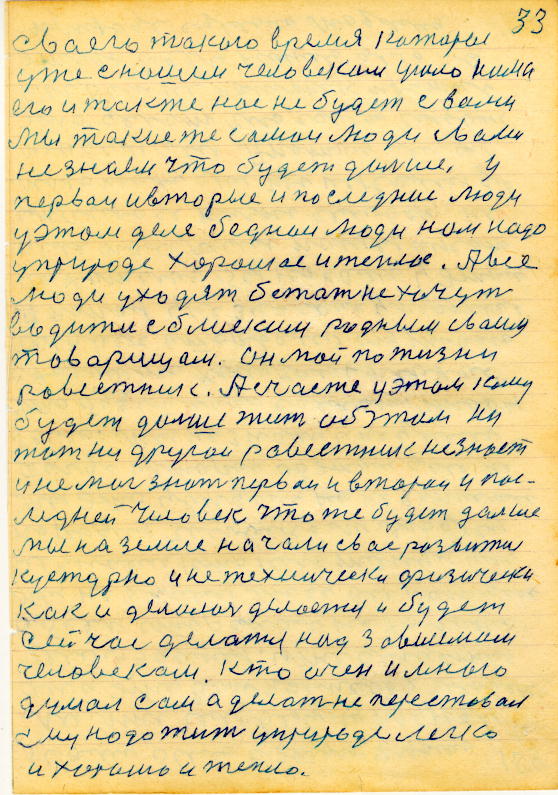 33
сваего такого время каторае
уже с нашим человекам ушло нима
его и так те нас не будет с вами
мы такие же самаи люди с вами
не знаем что будет дальше. У
первои и вторые и последние люди
у этом деле беднаи люди нам надо
у природе хорошае и теплае. А все
люди уходят бежат не хочут
водитися блиским родным сваим
товарищам. Он мой по жизни
ровестник. А счасте у этом каму
будет дольше жит об этом ни
тот ни другой ровестник не знает
и не мог знат перваи и вторай и пос-
ледней человек что же будет дальше
мы на земле начали свае развитие
кустарно и не технически физически
как и делалас делается и будет
сейчас делатся над зависимам
человекам. Кто очен и много
думал сам а делат не перестовал
ему надо жит у природе легко
и хорошо и тепло.